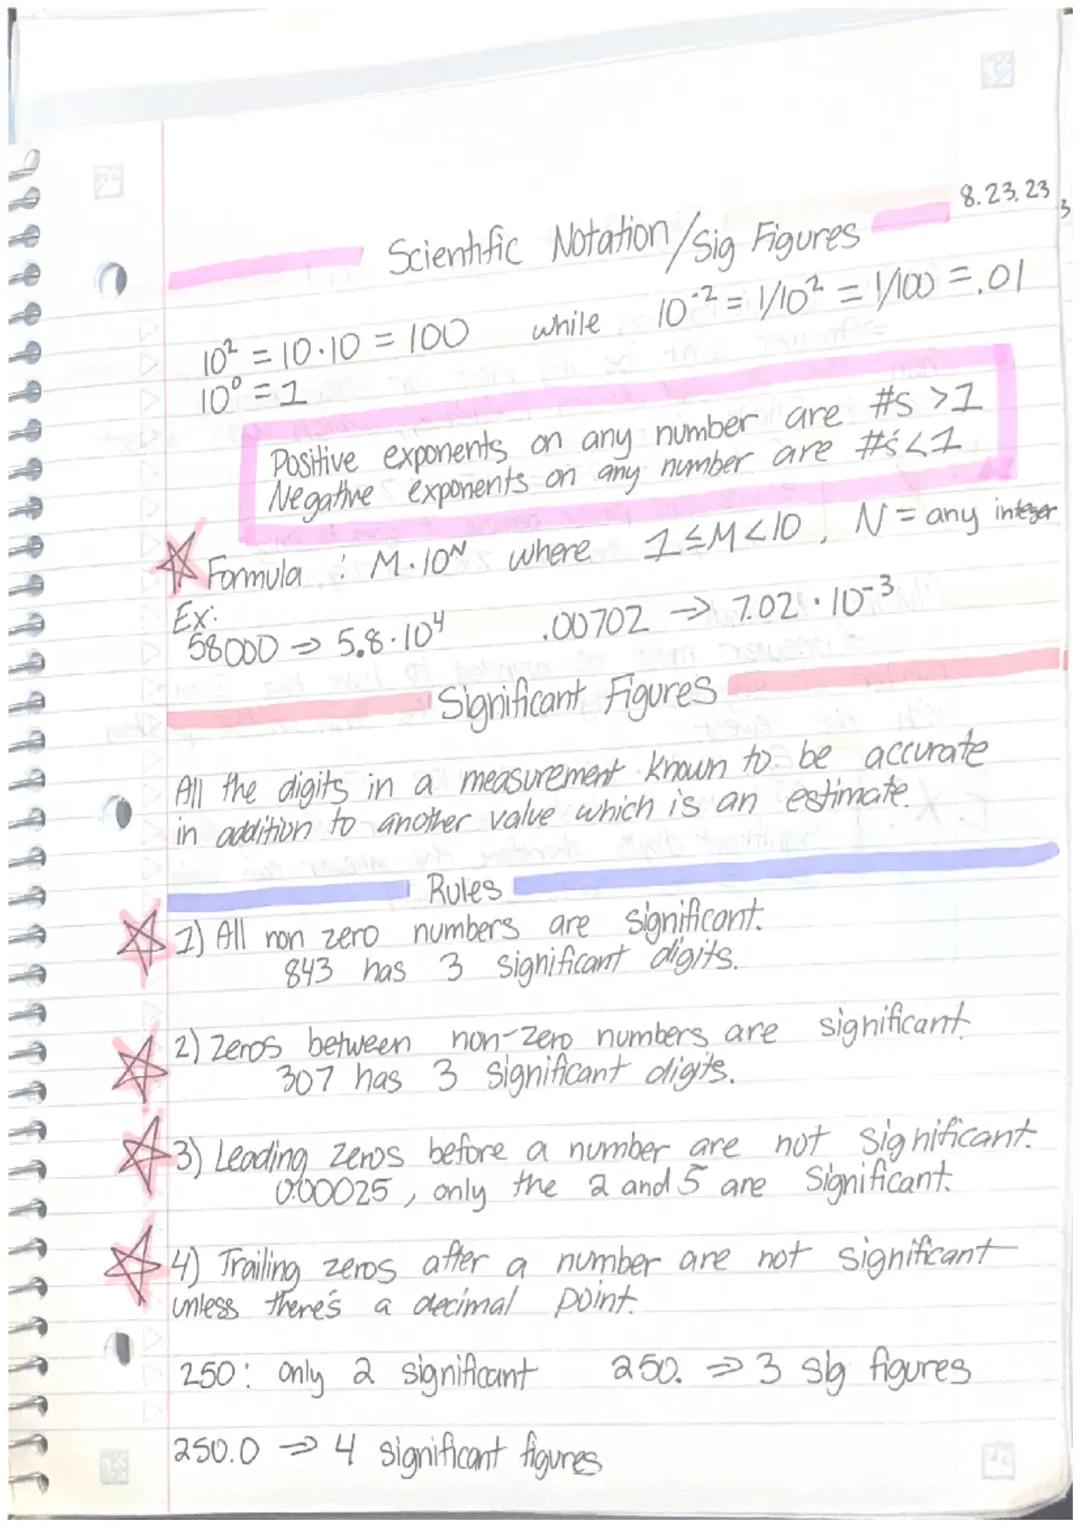 8.23.23
Scientific Notation/Sig Figures
10² = 10·10 = 100 while 10⁻² = 1/10² = 1/100 = .01
10⁰ = 1
Positive exponents on any number are #s >1
Negative exponents on any number are #s <1
Formula : M·10ᴺ where 1≤M<10, N = any integer
Ex:
58000 => 5.8·10⁴ .00702 -> 7.02·10⁻³
Significant Figures
All the digits in a measurement known to be accurate
in addition to another value which is an estimate.
Rules
1) All non zero numbers are significant.
843 has 3 significant digits.
2) Zeros between non-zero numbers are significant.
307 has 3 significant digits.
3) Leading zeros before a number are not significant.
0.00025, only the 2 and 5 are significant.
4) Trailing zeros after a number are not significant
unless there's a decimal point.
250: only 2 significant 250. => 3 sig figures
250.0 => 4 significant figures